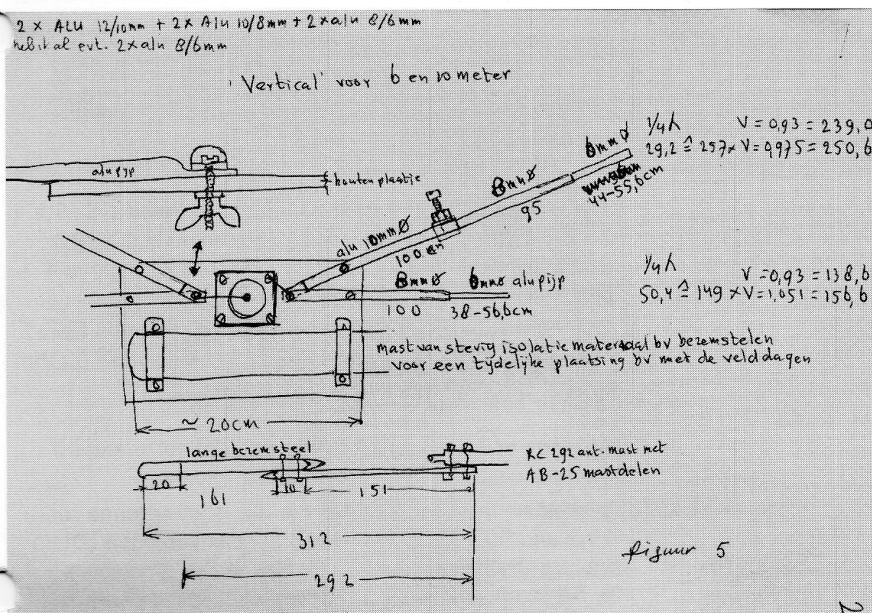 2 x ALU 12/10mm + 2x Alu 10/8mm + 2x alu 8/6mm
evt. 2x alu 8/6mm
'Vertical' voor 6 en 10 meter
alu pijp
houten plaatje
alu 10mmØ
100 cm
8mmØ
95
6mmØ
44-55,6cm
1/4λ V = 0,93 = 239,0
29,2 ≙ 257 x V = 0,975 = 250,6
8mmØ 6mmØ alu pijp
100 38-56,6cm
1/4λ V = 0,93 = 138,6
50,4 ≙ 149 x V = 1,051 = 156,6
mast van stevig isolatie materiaal bv bezemstelen
voor een tijdelijke plaatsing bv met de velddagen
~ 20cm
lange bezemsteel
RC 292 ant. mast met
AB-25 mastdelen
20
161
10
151
312
292
figuur 5
2